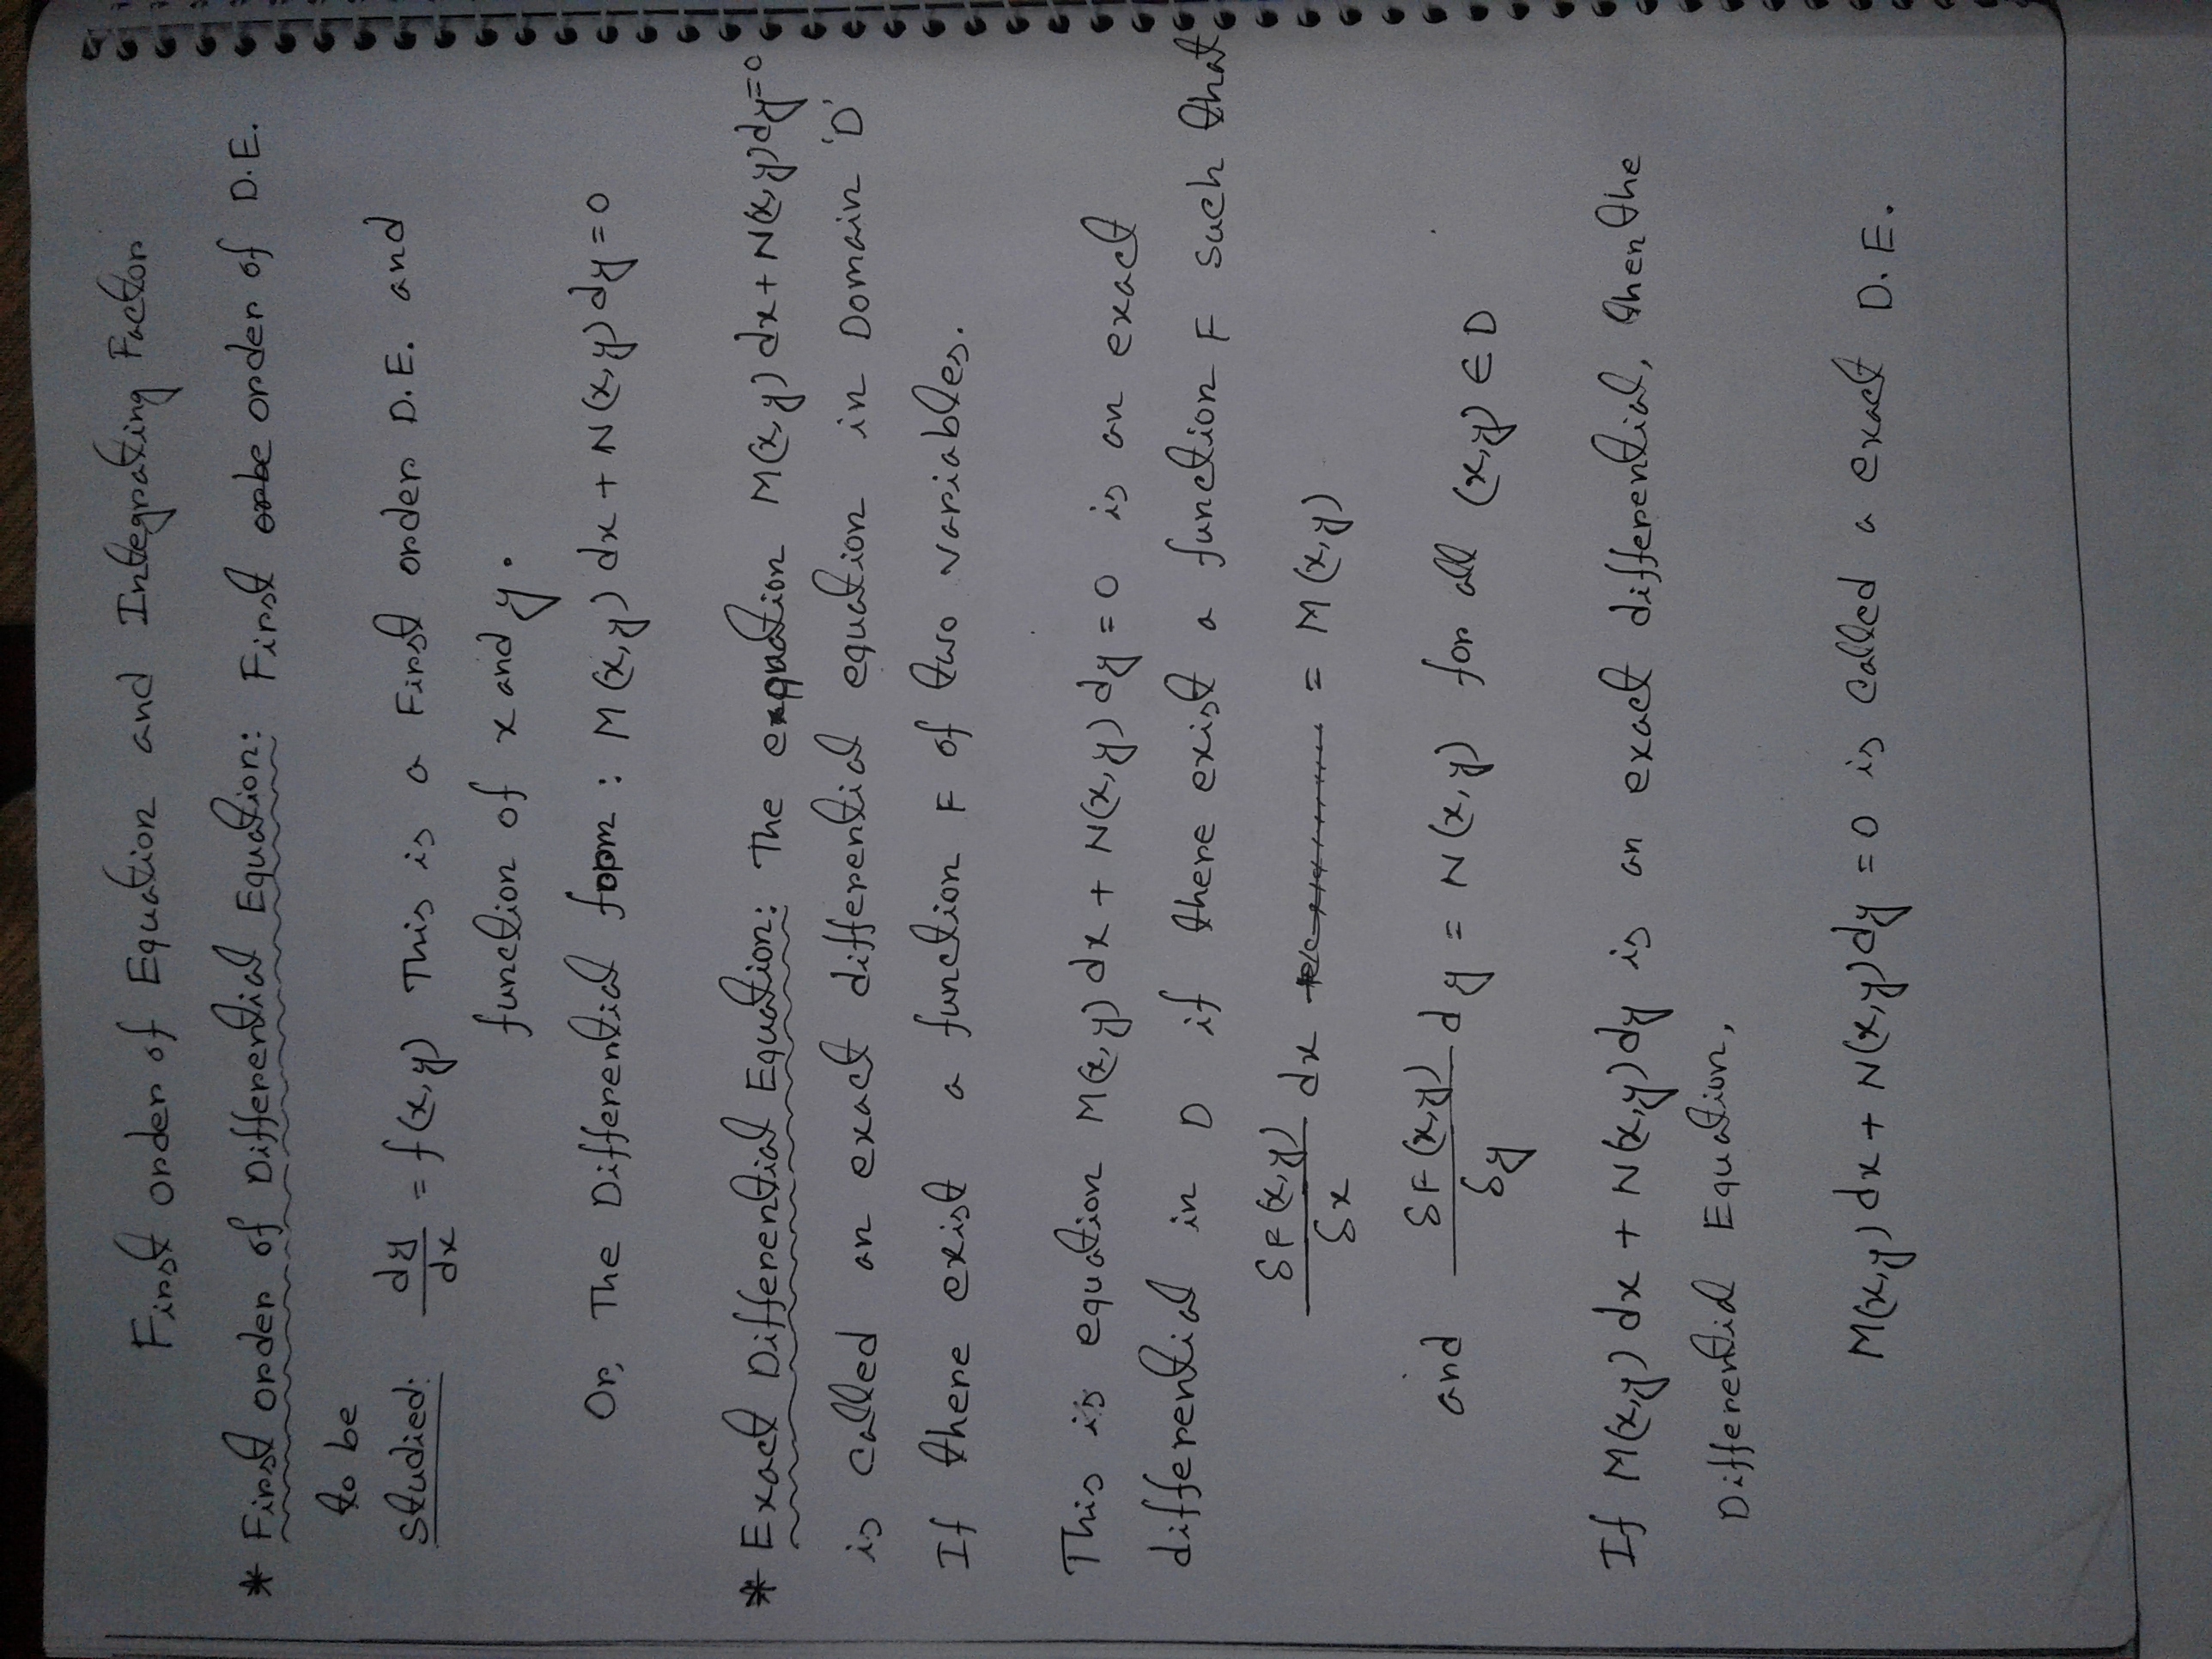 First order of Equation and Integrating Factor
* First order of Differential Equation: First order of D.E.
to be
studied: dy/dx = f(x,y) This is a First order D.E. and
function of x and y.
Or, The Differential form : M(x,y) dx + N(x,y) dy = 0
* Exact Differential Equation: The equation M(x,y) dx + N(x,y) dy = 0
is called an exact differential equation in Domain 'D'
If there exist a function F of two variables.
This is equation M(x,y) dx + N(x,y) dy = 0 is an exact
differential in D if there exist a function F such that
δF(x,y)/δx dx = M(x,y)
and δF(x,y)/δy dy = N(x,y) for all (x,y) ∈ D
If M(x,y) dx + N(x,y) dy is an exact differential, then the
Differential Equation,
M(x,y) dx + N(x,y) dy = 0 is called a exact D.E.